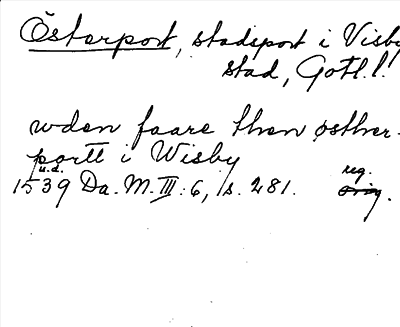 Österport, stadsport i Visby
stad, Gotl. l.
wden faare then østher-
portt i Wisby
u.d.
1539 Da. M. III: 6, s. 281. reg.
orig.